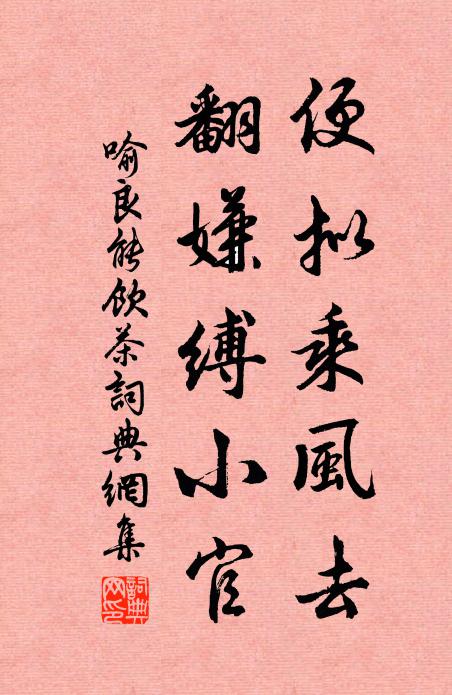 便拟乘風去
翻嫌縛小官
喻良能飲茶詞典網集
詞典網印